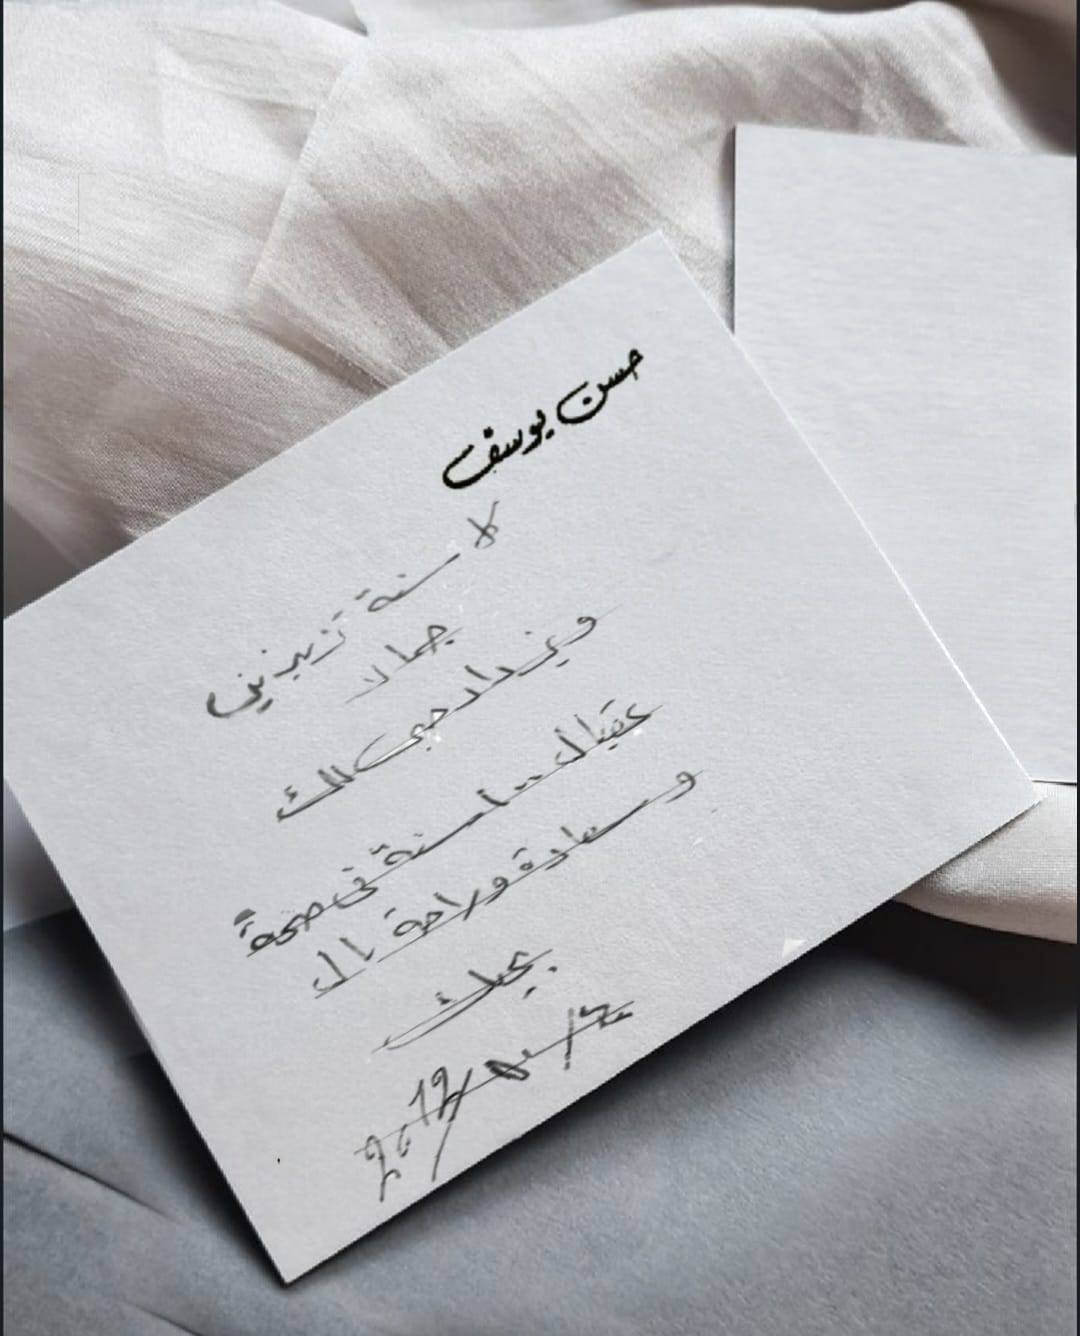 حسن يوسف
كل سنة تزيدين
جمالا
ويزداد حبى لك
عقبال ١٠٠ سنة فى صحة
وسعادة وراحة بال
بحبك